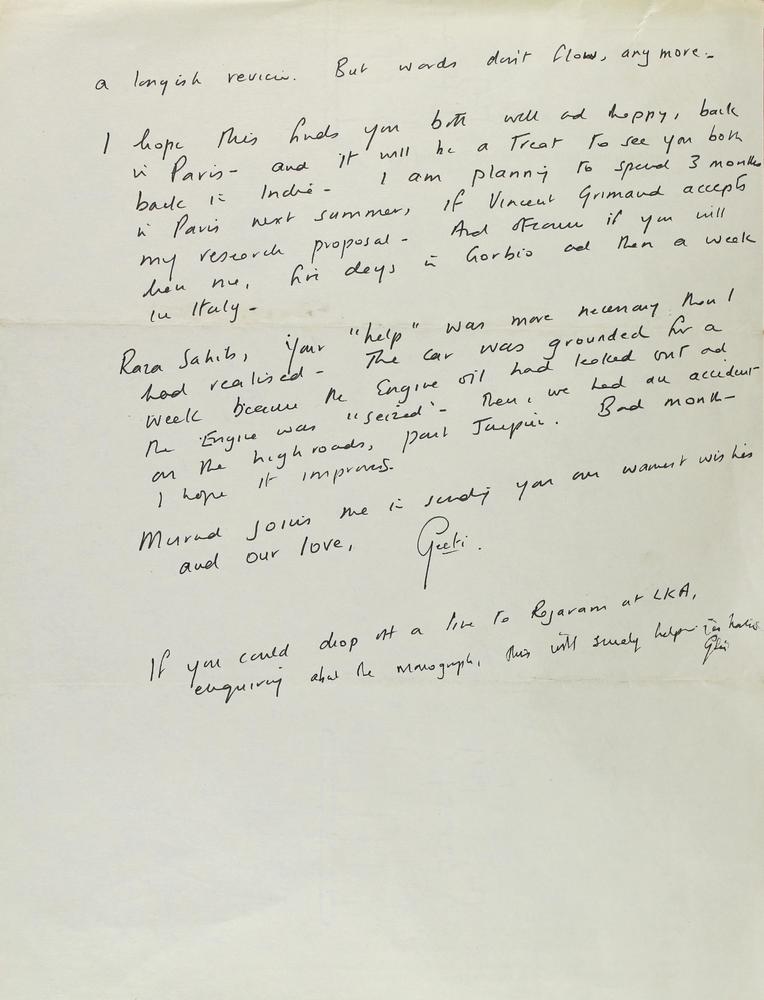 a longish review. But words don't flow, any more -
I hope this finds you both well and happy, back
in Paris - and it will be a Treat to see you both
back in India - I am planning to spend 3 months
in Paris next summer, if Vincent Grimaud accepts
my research proposal - And of course if you will
have me, five days in Gorbio and then a week
in Italy -
Raza Sahib, your "help" was more necessary than I
had realised - The car was grounded for a
week because the Engine oil had leaked out and
the Engine was "seized" - Then, we had an accident
on the high roads, past Jaipur. Bad month -
I hope it improves.
Murad joins me in sending you our warmest wishes
and our love,
Geeti.
If you could drop off a line to Rajaram at LKA,
enquiring about the monograph, this will surely help
Geeti